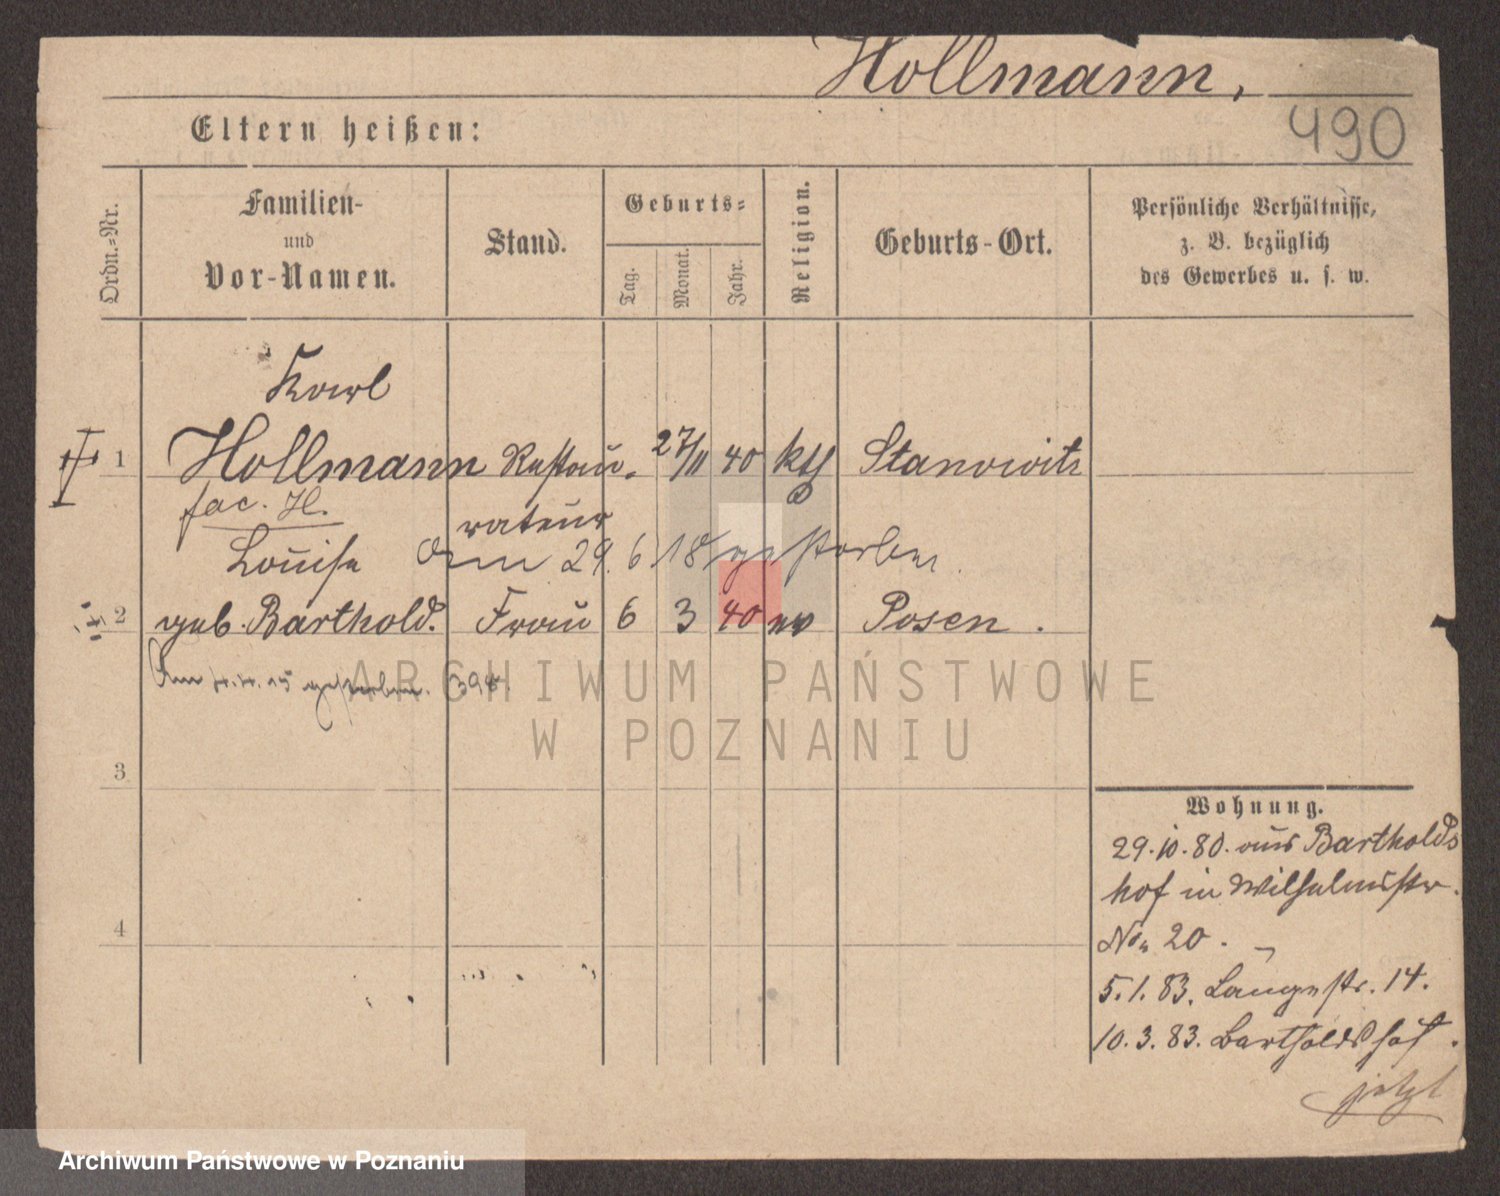 Hollmann,
490
Eltern heißen:
Ordn.=Nr.
Familien-
und
Vor-Namen.
Stand.
Geburts=
Tag.
Monat.
Jahr.
Religion.
Geburts-Ort.
Persönliche Verhältnisse,
z. B. bezüglich
des Gewerbes u. s. w.
Karl
1 Hollmann Restau- 27/11 40 kth Stanowitz
rateur
Louise am 29. 6 18 gestorben.
2 geb. Barthold. Frau 6 3 40 ev Posen.
Am gestorben.
ARCHIWUM PAŃSTWOWE
W POZNANIU
3
4
Wohnung.
29.10.80. aus Bartholds
hof in Wilhelmstr.
No. 20.
5.1.83. Langestr. 14.
10.3.83. Bartholdshof.
jetzt
Archiwum Państwowe w Poznaniu